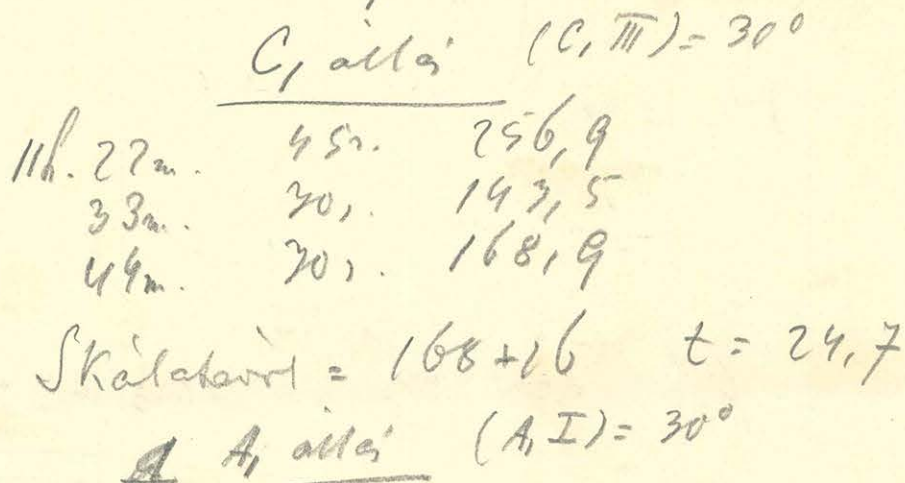 C, állás (C, III) = 30°
11h. 22m. 45s. 256,9
33m. 30s. 143,5
44m. 30s. 168,9
Skálatávol = 168+16 t = 24,7
A, állás (A, I) = 30°